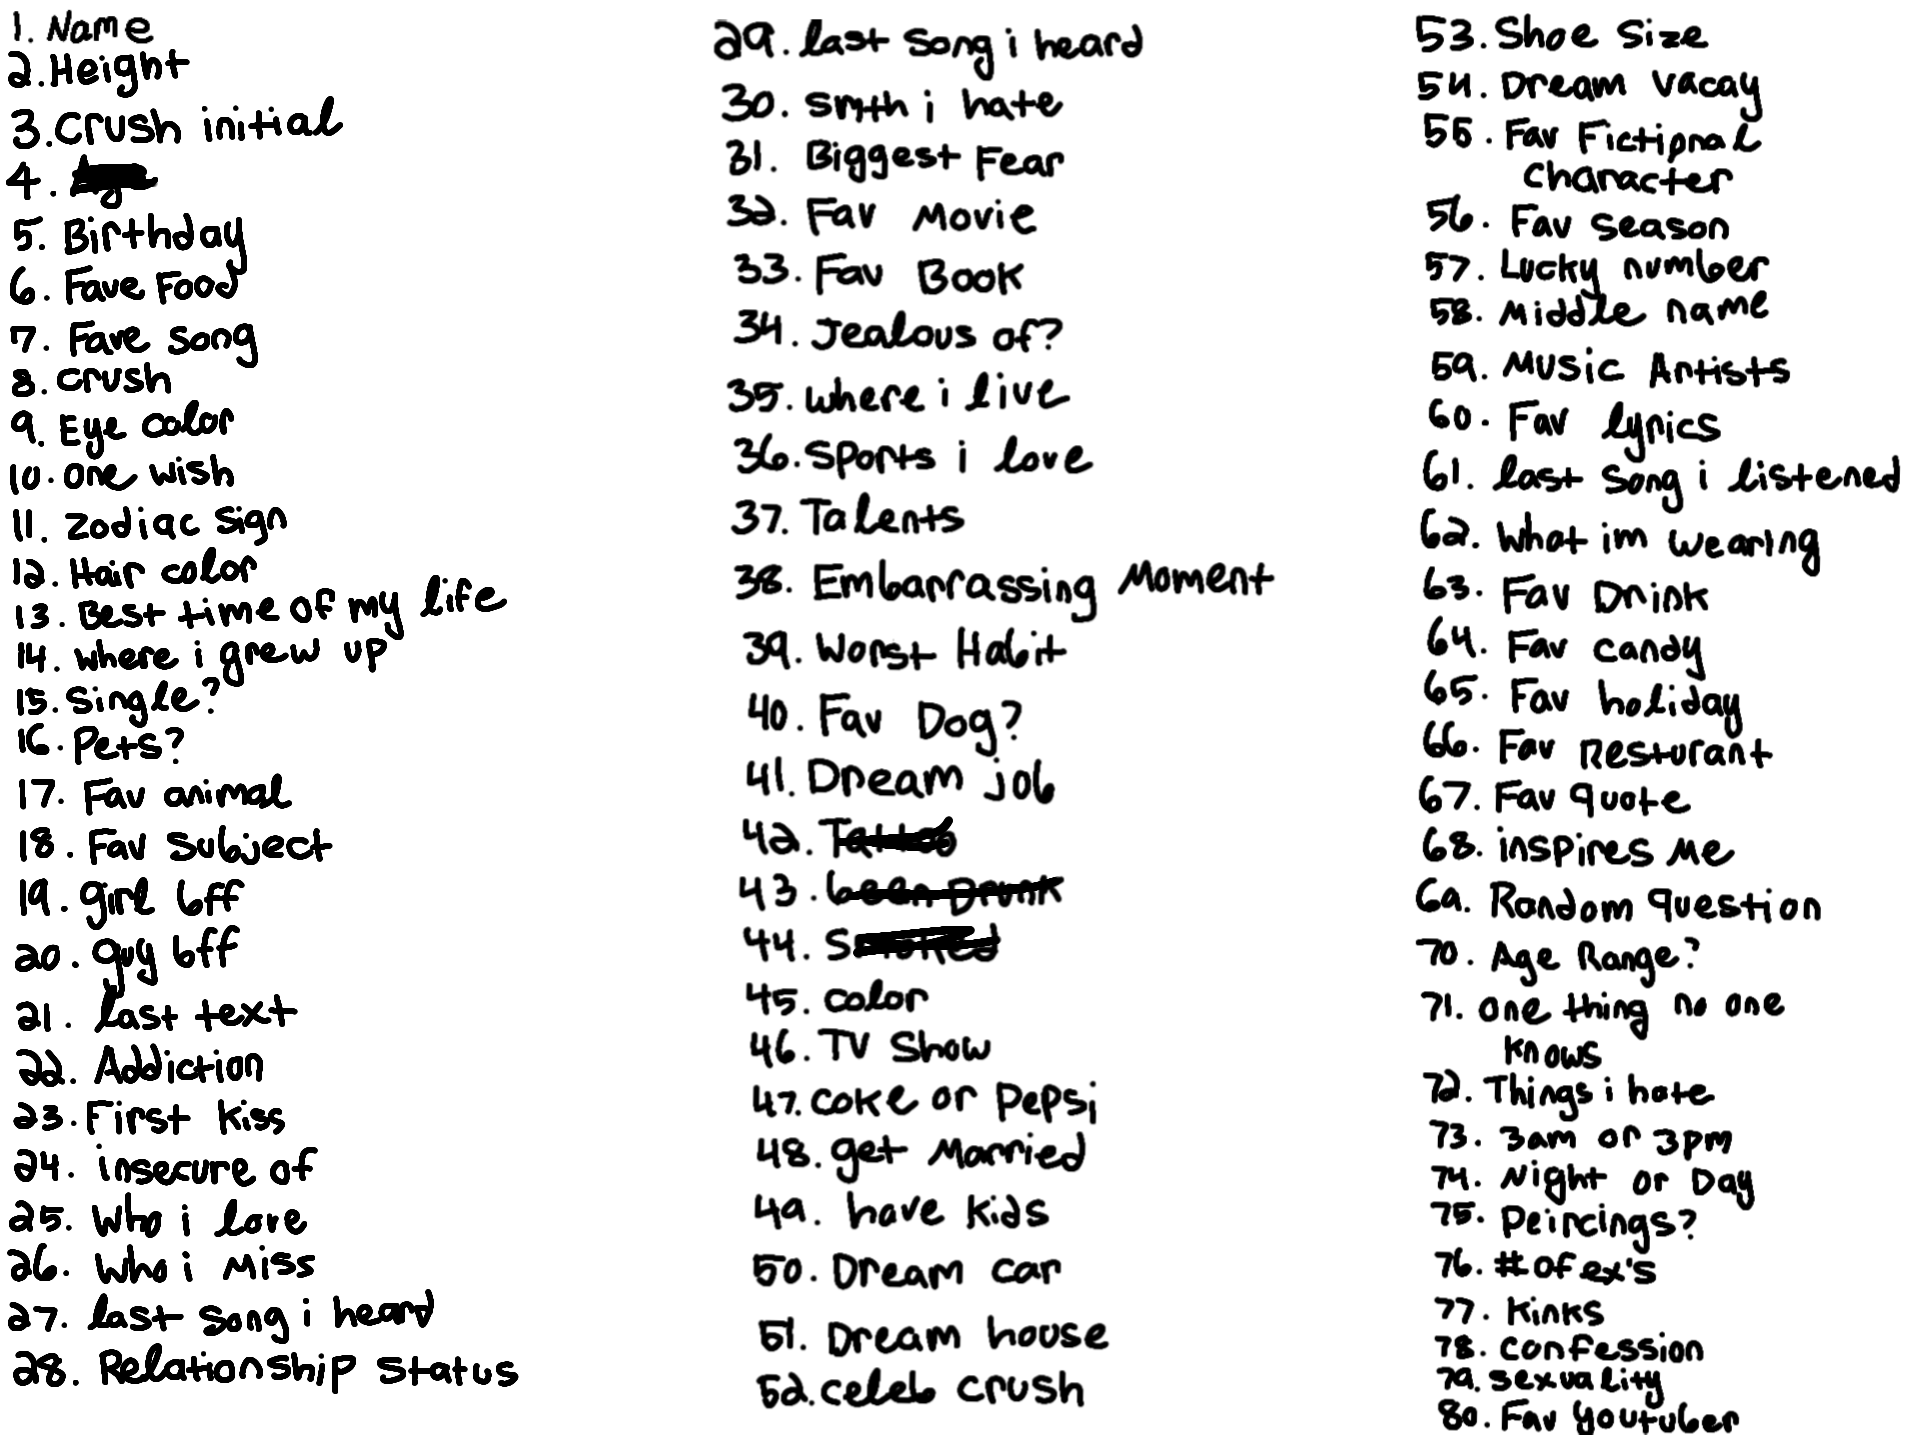 1. Name
2. Height
3. Crush initial
4.
5. Birthday
6. Fave Food
7. Fave song
8. crush
9. Eye color
10. one wish
11. zodiac sign
12. Hair color
13. Best time of my life
14. where i grew up
15. Single?
16. Pets?
17. Fav animal
18. Fav subject
19. girl bff
20. guy bff
21. last text
22. Addiction
23. First kiss
24. insecure of
25. Who i love
26. Who i miss
27. last song i heard
28. Relationship status
29. last song i heard
30. smth i hate
31. Biggest Fear
32. Fav Movie
33. Fav Book
34. Jealous of?
35. where i live
36. Sports i love
37. Talents
38. Embarrassing Moment
39. Worst Habit
40. Fav Dog?
41. Dream job
42. Tattoo
43. been Drunk
44. Smoked
45. color
46. TV Show
47. coke or pepsi
48. get Married
49. have kids
50. Dream car
51. Dream house
52. celeb crush
53. Shoe Size
54. Dream vacay
55. Fav Fictional
character
56. Fav season
57. Lucky number
58. Middle name
59. Music Artists
60. Fav lyrics
61. last song i listened
62. What im wearing
63. Fav Drink
64. Fav candy
65. Fav holiday
66. Fav Resturant
67. Fav quote
68. inspires me
69. Random question
70. Age Range?
71. one thing no one
knows
72. Things i hate
73. 3am or 3pm
74. Night or Day
75. Peircings?
76. # of ex's
77. Kinks
78. confession
79. sexuality
80. Fav youtuber